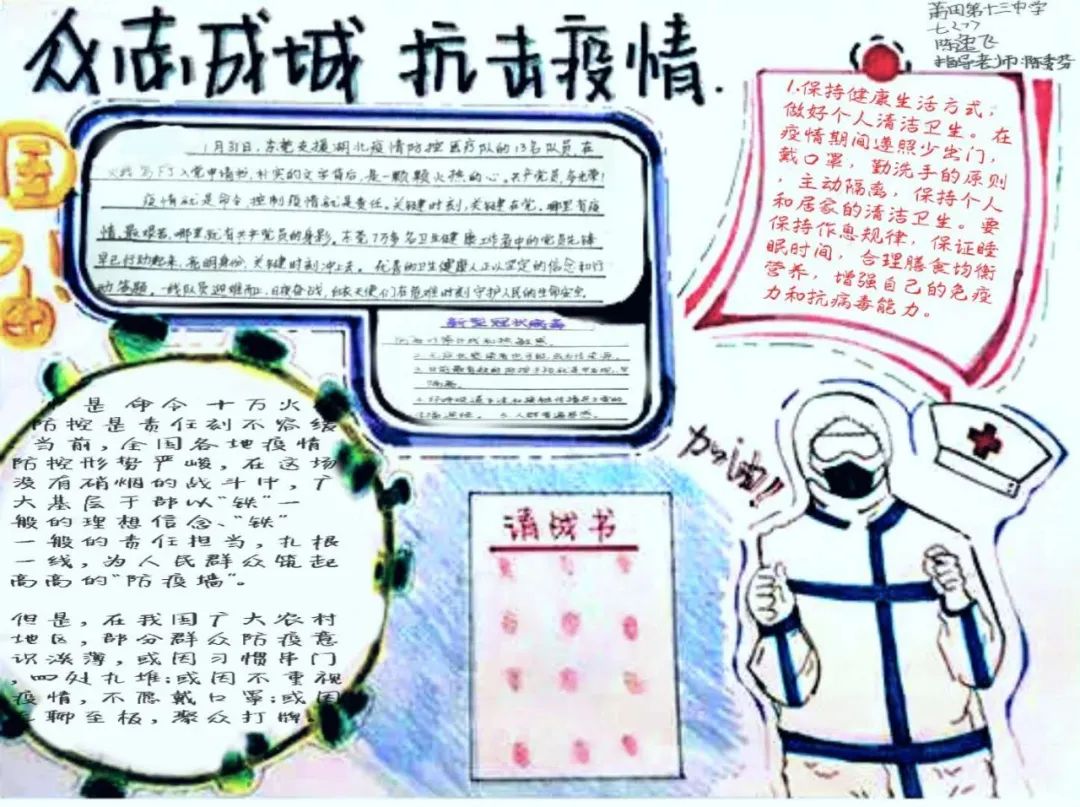 众志成城 抗击疫情.
莆田第十三中学
指导老师:陈
1.保持健康生活方式,
做好个人清洁卫生。在
疫情期间遵照少出门,
戴口罩,勤洗手的原则
,主动隔离,保持个人
和居家的清洁卫生。要
保持作息规律,保证睡
眠时间,合理膳食均衡
营养,增强自己的免疫
力和抗病毒能力。
1月31日,东莞支援湖北疫情防控医疗队的13名队员,在
火线写下入党申请书,朴实的文字背后,是一颗颗火热的心。共产党员,多光荣!
疫情就是命令,控制疫情就是责任。关键时刻,关键在党。哪里有疫
情、最艰苦,哪里就有共产党员的身影。东莞7万多名卫生健康工作者中的党员先锋
早已行动起来,亮明身份,关键时刻冲上去。 的卫生健康人正以坚定的信念和行
动答题。一线队员迎难而上,日夜奋战,白衣天使们在危难时刻守护人民的生命安全。
新型冠状病毒
是命令十万火
防控是责任刻不容缓
当前,全国各地疫情
防控形势严峻,在这场
没有硝烟的战斗中,广
大基层干部以“铁”一
般的理想信念、“铁”
一般的责任担当,扎根
一线,为人民群众筑起
高高的“防疫墙”。
但是,在我国广大农村
地区,部分群众防疫意
识淡薄,或因习惯串门
,四处扎堆;或因不重视
疫情,不愿戴口罩;或因
聊至极,聚众打牌。
请战书
加油!!